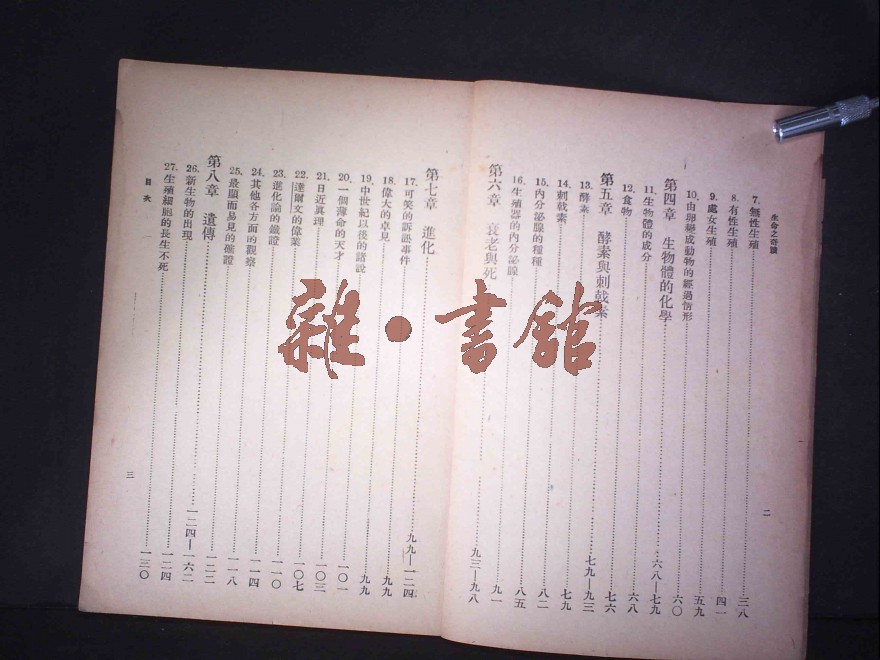 生命之奇蹟
7. 無性生殖……三八
8. 有性生殖……四一
9. 處女生殖……五九
10. 由卵變成動物的經過情形……六〇
第四章 生物體的化學……六八—七九
11. 生物體的成分……六八
12. 食物……七六
第五章 酵素與刺戟素……七九—九三
13. 酵素……七九
14. 刺戟素……八二
15. 內分泌腺的種種……八五
16. 生殖器的內分泌腺……九一
第六章 衰老與死……九三—九八
二
第七章 進化……九九—一二四
17. 可笑的訴訟事件……九九
18. 偉大的卓見……九九
19. 中世紀以後的諸說……一〇一
20. 一個薄命的天才……一〇三
21. 日近眞理……一〇七
22. 達爾文的偉業……一一〇
23. 進化論的鐵證……一一四
24. 其他各方面的觀察……一一八
25. 最顯而易見的確證……一二二
第八章 遺傳……一二四—一六二
26. 新生物的出現……一二四
27. 生殖細胞的長生不死……一三〇
目次
三
雜·書館